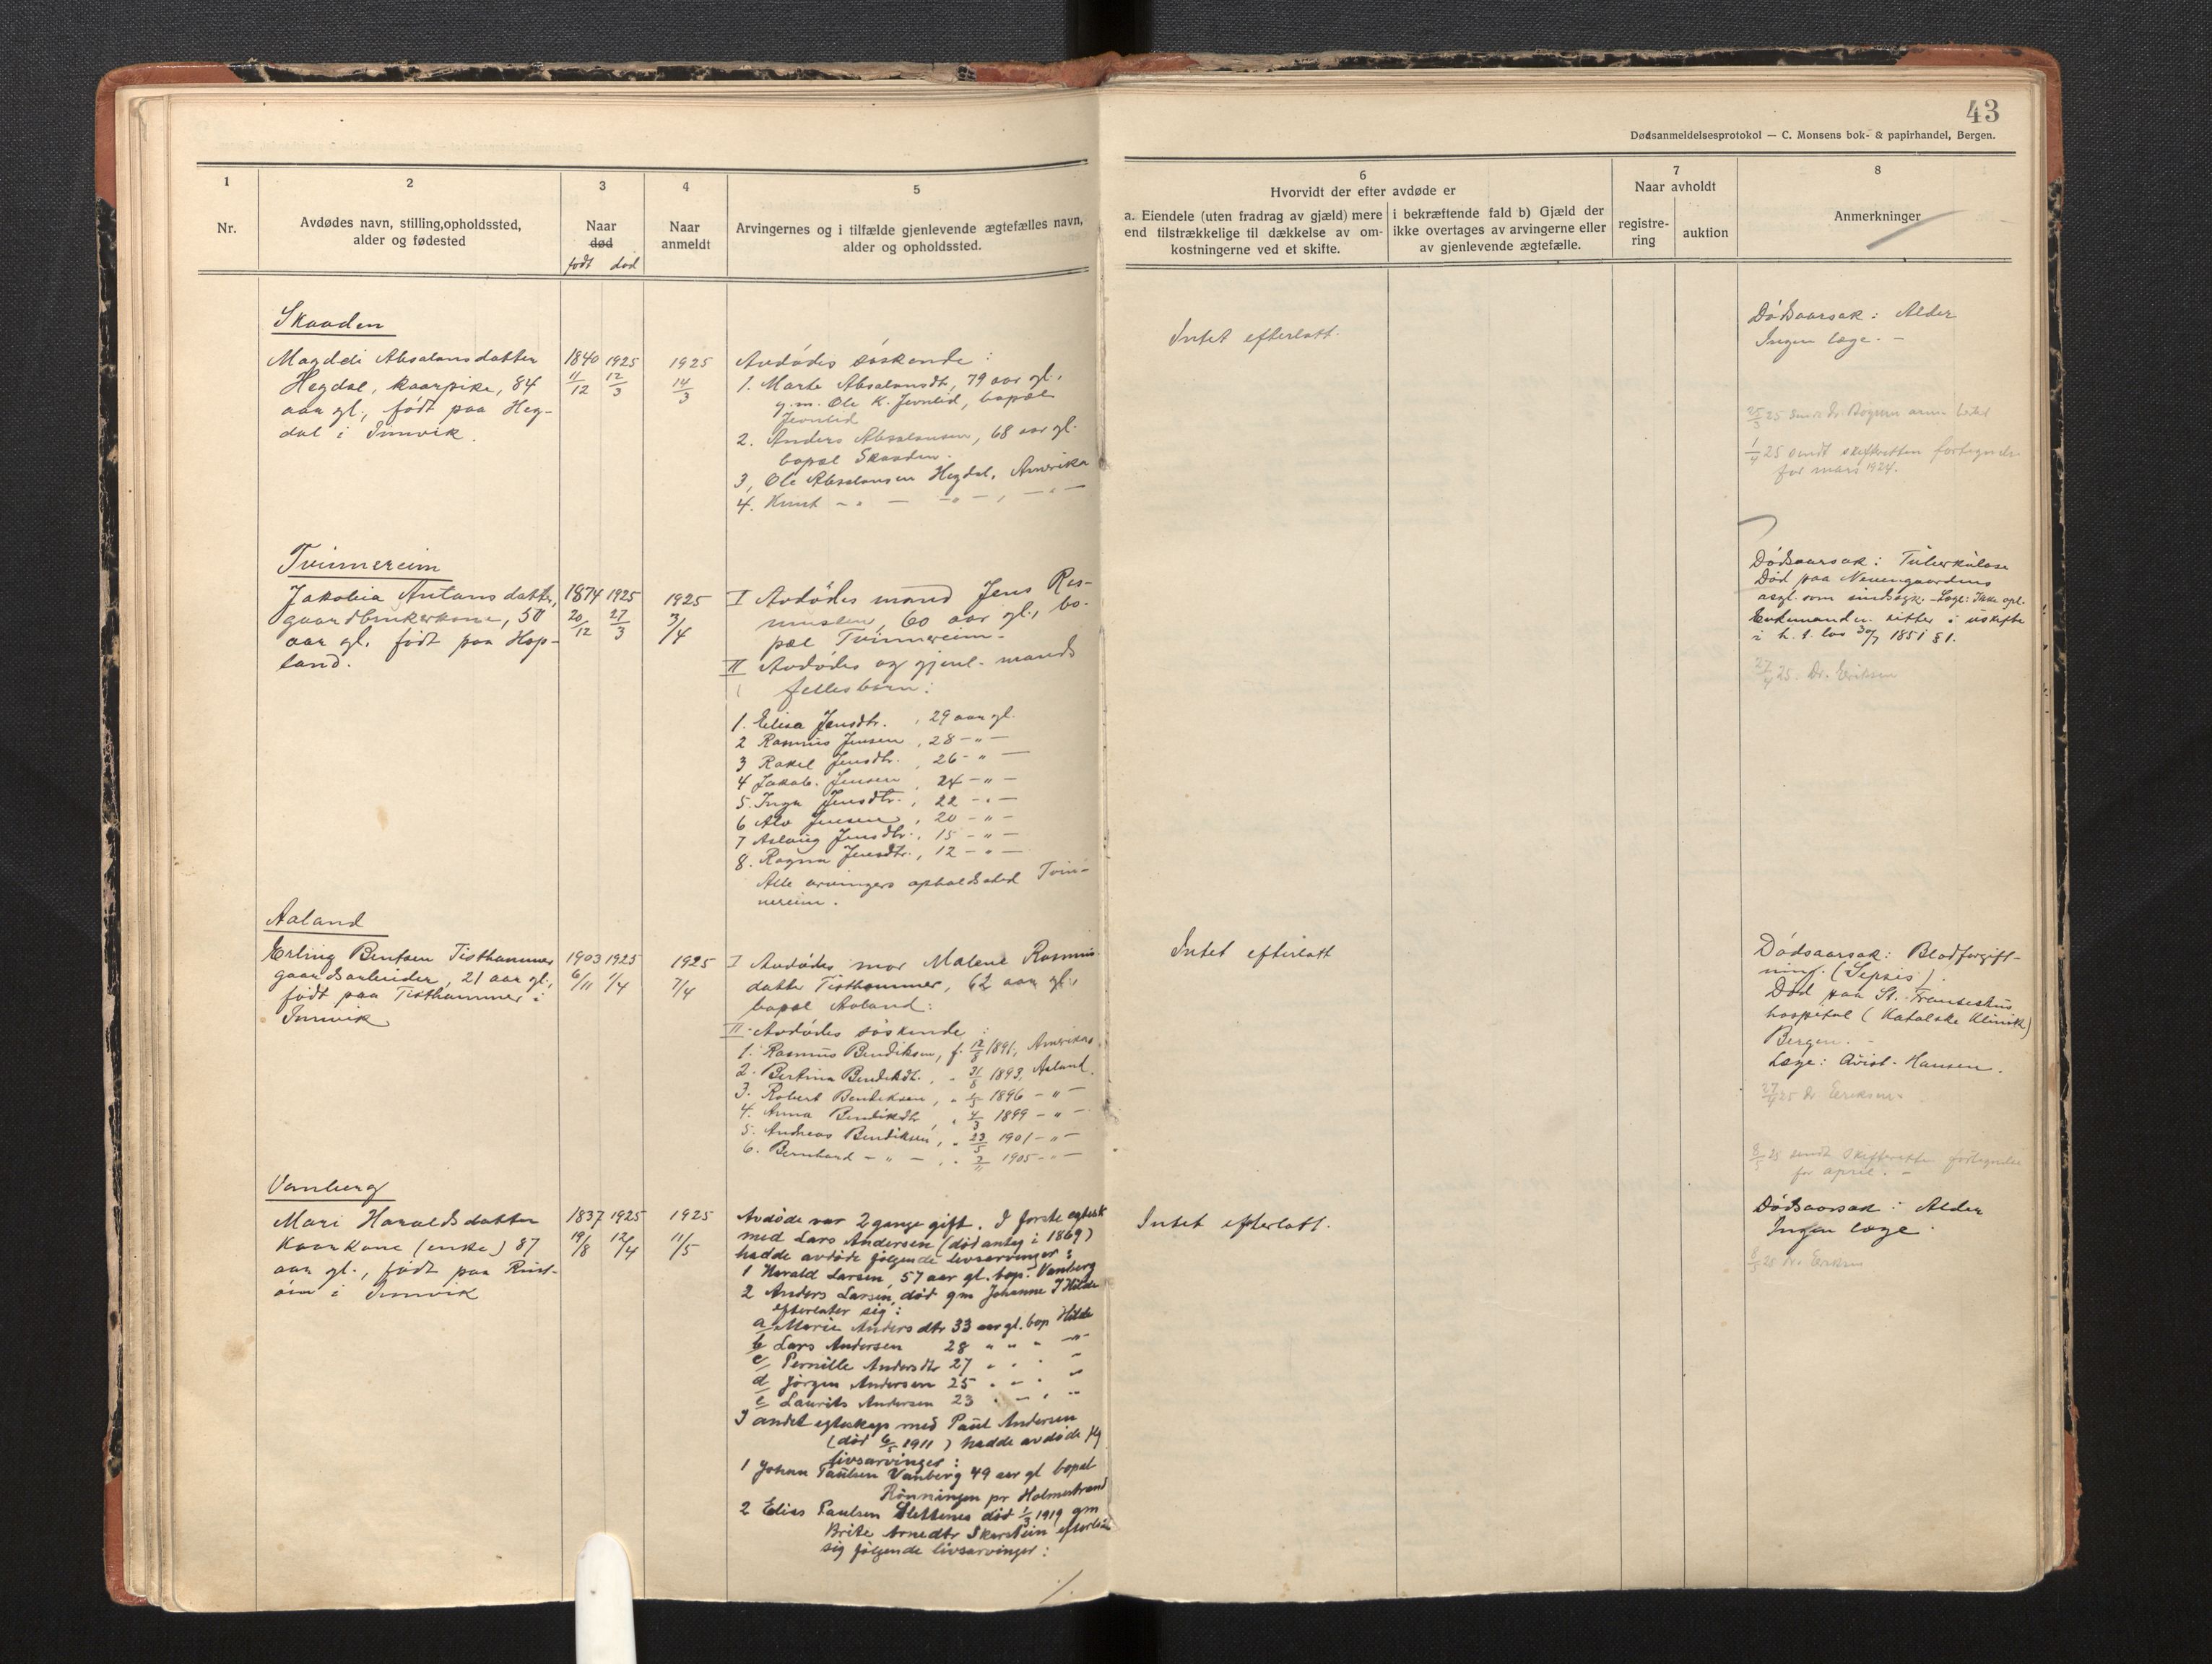 43
Dødsanmeldelsesprotokol — C. Monsens bok- & papirhandel, Bergen.
1
Nr.
2
Avdødes navn, stilling, opholdssted,
alder og fødested
3
Naar
død
født død
4
Naar
anmeldt
5
Arvingernes og i tilfælde gjenlevende ægtefælles navn,
alder og opholdssted.
6
Hvorvidt der efter avdøde er
a. Eiendele (uten fradrag av gjæld) mere
end tilstrækkelige til dækkelse av om-
kostningerne ved et skifte.
i bekræftende fald b) Gjæld der
ikke overtages av arvingerne eller
av gjenlevende ægtefælle.
7
Naar avholdt
registre-
ring
auktion
8
Anmerkninger
Skaaden
Magdeli Absalonsdatter
Hegdal, kaarpike, 84
aar gl., født paa Heg-
dal i Innvik.
1840 1925
11/12 12/3
1925
14/3
Avdødes søskende:
1. Marte Absalonsdt, 79 aar gl.,
g.m. Ole K. Jevnlid, bopæl
Jevnlid
2. Anders Absalonsen, 68 aar gl.
bopæl Skaaden.
3, Ole Absalonsen Hegdal, Amerika
4. Knut - " — - " - , - " —
Intet efterlatt.
Dødsaarsak: Alder
Ingen læge. -
25/3 25 Dr
1/4 25 sendt skifteretten fortegnelse
for mars 1924.
Tvinnereim
Jakobia Antonsdatter,
gaardbrukerkone, 50
aar gl. født paa Hop-
land.
1874 1925
20/12 27/3
1925
3/4
I Avdødes mand Jens Ras-
mussen, 60 aar gl., bo-
pæl Tvinnereim.
II Avdødes og gjenl. mands
fellesbørn:
1. Elisa Jensdtr. , 29 aar gl.
2 Rasmus Jensen , 28 - " —
3 Rakel Jensdtr. , 26 - " —
4 Jakob. Jensen , 24 - " —
5. Inga Jensdtr. , 22 - " —
6 Alv Jensen , 20 - " —
7 Aslaug Jensdtr. , 15 - " —
8. Ragna Jensdtr. , 12 - " —
Alle arvingers opholdssted Tvin-
nereim.
Dødsaarsak: Tuberkulose
Død paa Neuengaardens
asyl som sindssyk. - Læge: Ikke opl.
Enkemanden sitter i uskifte
i h. t. lov 30/7 1851 §1.
27/4 25. Dr. Eriksen
Aaland
Erling Bentsen Tisthammer
gaardsarbeider, 21 aar gl.,
født paa Tisthammer i
Innvik
1903 1925
6/11 1/4
1925
7/4
I Avdødes mor Malene Rasmus-
datter Tisthammer, 62 aar gl.,
bopæl Aaland:
II. Avdødes søskende:
1. Rasmus Bendiksen, f. 12/8 1891, Amerika
2. Bertina Bendiksdt. , " 31/8 1893, Aaland.
3. Robert Bendiksen, " 6/5 1896 - " —
4. Anna Bendiksdtr , " 4/3 1899 - " —
5. Andreas Bendiksen, " 23/5 1901 - " —
6. Bernhard - " - , " 2/11 1905 - " —
Intet efterlatt
Dødsaarsak: Blodforgift-
ning. (Sepsis).
Død paa St. Franciskus
hospital (Katolske Klinik)
Bergen. -
Læge: Qvist-Hansen.
27/4 25 Dr Eriksen
8/5 25 sendt skifteretten fortegnelse
for april. -
Vanberg
Mari Haraldsdatter
Kaarkone (enke) 87
aar gl., født paa Rust-
øen i Innvik
1837 1925
19/8 12/4
1925
11/5
Avdøde var 2 gange gift. I første egtesk
med Lars Andersen (død anteg i 1869)
hadde avdøde følgende livsarvinger:
1 Harald Larsen, 57 aar gl. bop. Vanberg
2 Anders Larsen, død gm Johanne J Hilde
efterlater sig:
a Marie Andersdtr 33 aar gl. bop Hilde
b Lars Andersen 28 " " " "
c Pernille Andersdtr 27 " " " "
d Jørgen Andersen 25 " " " "
e Laurits Andersen 23 " " " "
I andet egteskap med Paul Andersen
(død 6/5 1911) hadde avdøde flg
livsarvinger:
1 Johan Paulsen Vanberg 49 aar gl bopæl
Rønningen pr Holmestrand
2 Elias Paulsen Slettenes død 1/3 1919 gm
Brite Arnedtr Skarstein efterlater
sig følgende livsarvinger:
./.
Intet efterlatt.
Dødsaarsak: Alder
Ingen læge.
8/5 25 Dr. Eriksen